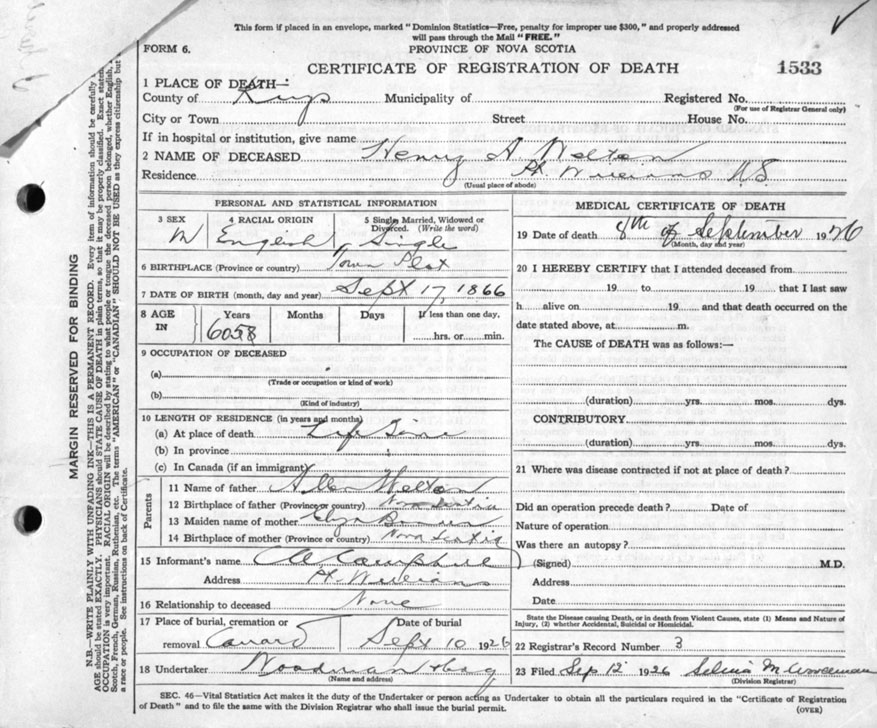 This form if placed in an envelope, marked "Dominion Statistics—Free, penalty for improper use $300," and properly addressed
will pass through the Mail "FREE."
FORM 6.
PROVINCE OF NOVA SCOTIA
CERTIFICATE OF REGISTRATION OF DEATH
1533
1 PLACE OF DEATH—
County of Kings Municipality of Registered No.
(For use of Registrar General only)
City or Town Street House No.
If in hospital or institution, give name
2 NAME OF DECEASED Henry A Welton
Residence Pt. Williams N.S.
(Usual place of abode)
MARGIN RESERVED FOR BINDING
N.B.—WRITE PLAINLY WITH UNFADING INK—THIS IS A PERMANENT RECORD. Every item of information should be carefully
AGE should be stated EXACTLY. PHYSICIANS should STATE CAUSE OF DEATH in plain terms, so that it may be properly classified. Exact
OCCUPATION is very important. RACIAL ORIGIN will be described by stating to what people or tongue the deceased person belonged, whether English,
Scotch, French, German, Russian, Ruthenian, etc. The terms "AMERICAN" or "CANADIAN" SHOULD NOT BE USED as they express citizenship but
a race or people. See instructions on back of Certificate.
PERSONAL AND STATISTICAL INFORMATION
3 SEX 4 RACIAL ORIGIN 5 Single, Married, Widowed or
Divorced. (Write the word)
M English Single
6 BIRTHPLACE (Province or country) Town Plot
7 DATE OF BIRTH (month, day and year) Sept 17, 1866
8 AGE IN Years Months Days If less than one day.
6058 hrs. or min.
9 OCCUPATION OF DECEASED
(a)
(Trade or occupation or kind of work)
(b)
(Kind of industry)
10 LENGTH OF RESIDENCE (in years and months)
(a) At place of death Life Time
(b) In province
(c) In Canada (if an immigrant)
Parents
11 Name of father Allen Welton
12 Birthplace of father (Province or country) Nova Scotia
13 Maiden name of mother Eliza
14 Birthplace of mother (Province or country) Nova Scotia
15 Informant's name Campbell
Address Pt. Williams
16 Relationship to deceased None
17 Place of burial, cremation or Date of burial
removal Canard Sept 10 1926
18 Undertaker Woodman
(Name and address)
MEDICAL CERTIFICATE OF DEATH
19 Date of death 8th of September 1926
(Month, day and year)
20 I HEREBY CERTIFY that I attended deceased from
19 to 19 that I last saw
h alive on 19 and that death occurred on the
date stated above, at m.
The CAUSE of DEATH was as follows:—
(duration) yrs. mos. dys.
CONTRIBUTORY
(duration) yrs. mos. dys.
21 Where was disease contracted if not at place of death?
Did an operation precede death? Date of
Nature of operation
Was there an autopsy?
(Signed) M.D.
Address
Date
State the Disease causing Death, or in death from Violent Causes, state (1) Means and Nature of
Injury, (2) whether Accidental, Suicidal or Homicidal.
22 Registrar's Record Number 3
23 Filed Sep 12 1926 Selina M
(Division Registrar)
SEC. 46—Vital Statistics Act makes it the duty of the Undertaker or person acting as Undertaker to obtain all the particulars required in the "Certificate of Registration
of Death" and to file the same with the Division Registrar who shall issue the burial permit.
(OVER)